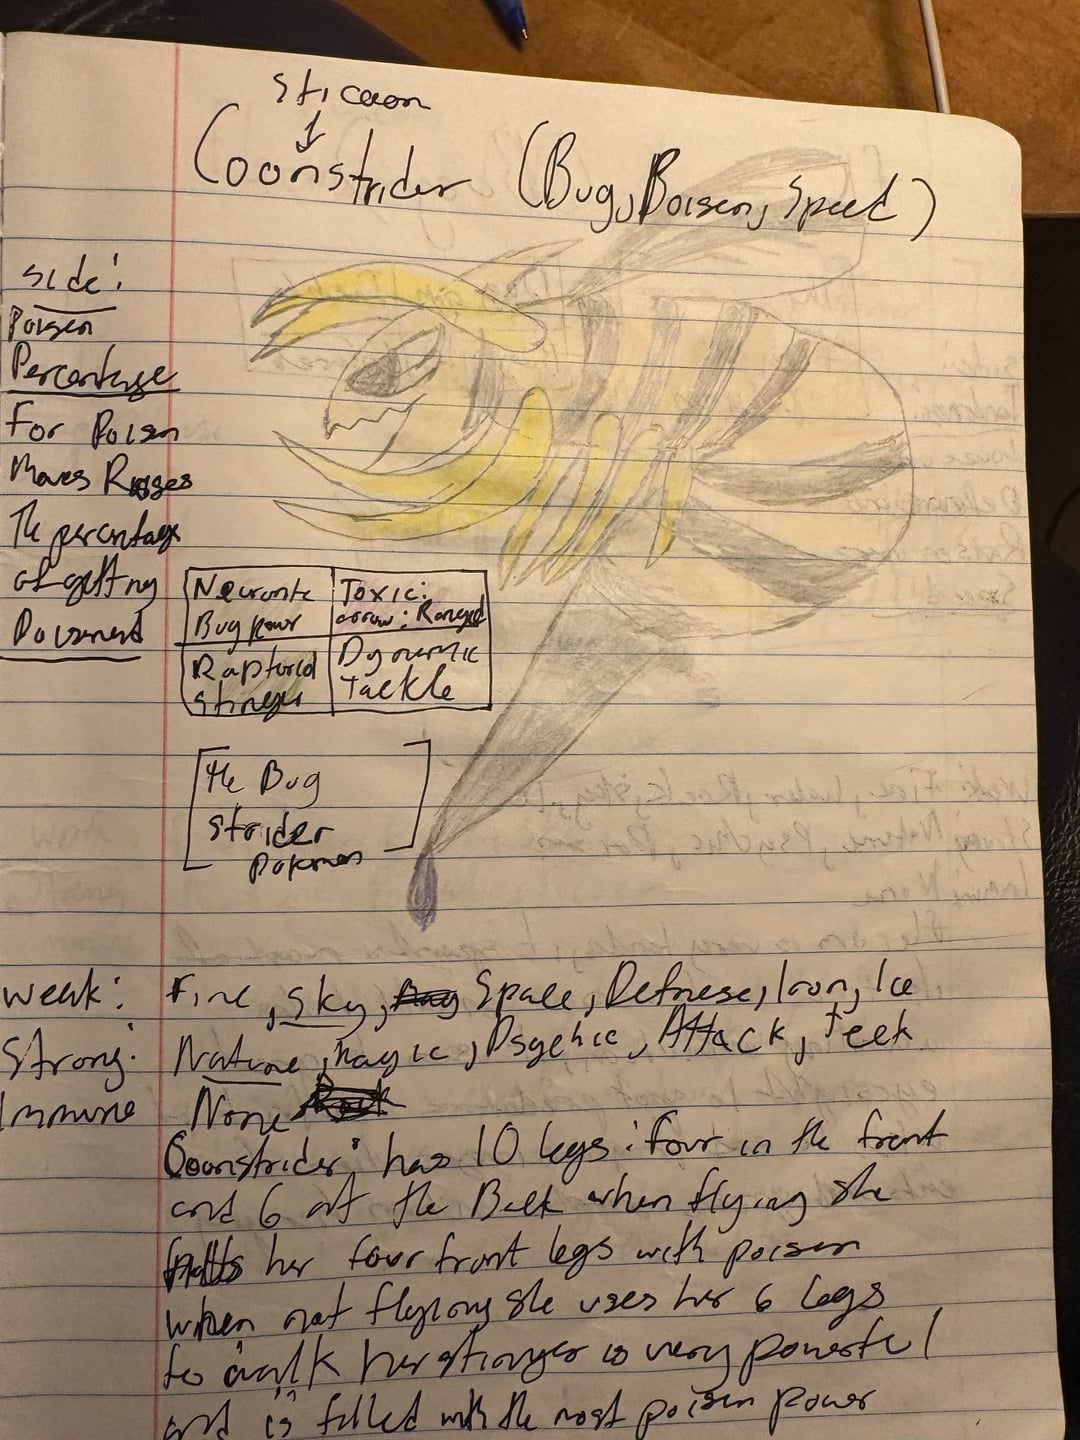 Sticoon
Coonstrider (Bug, Poisen, Speed)
side:
Poisen
Percentage
For Poisen
Moves Raises
The percentage
of getting
Poisened
Bug power
Toxic:
arrow: Ranged
Raptured
stinger
Dynamic
Tackle
The Bug
strider
Pokemon
weak: Fire, Sky, Space, Defnese, Iron, Ice
Strong: Nature, Magic, Psychic, Attack, Teek
Immune None
Coonstrider: has 10 legs: four in the front
and 6 at the Back when flying she
her four front legs with poisen
when not flying she uses her 6 legs
to walk her stinger is very powerful
and is filled with the most poisen power